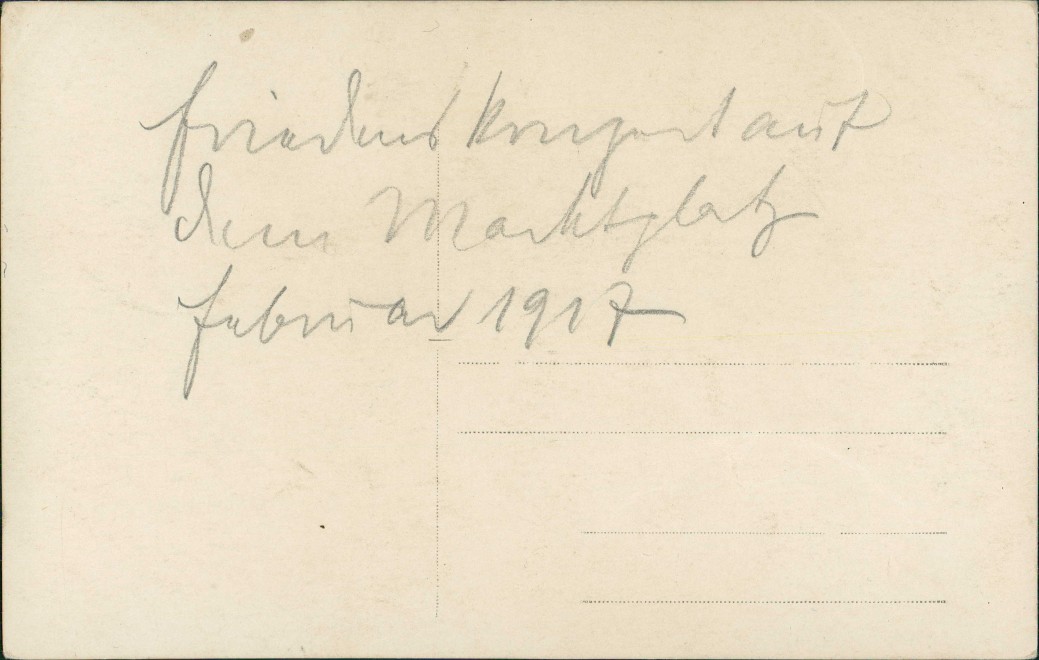 Friedenskonzert auf
dem Marktplatz
Februar 1917